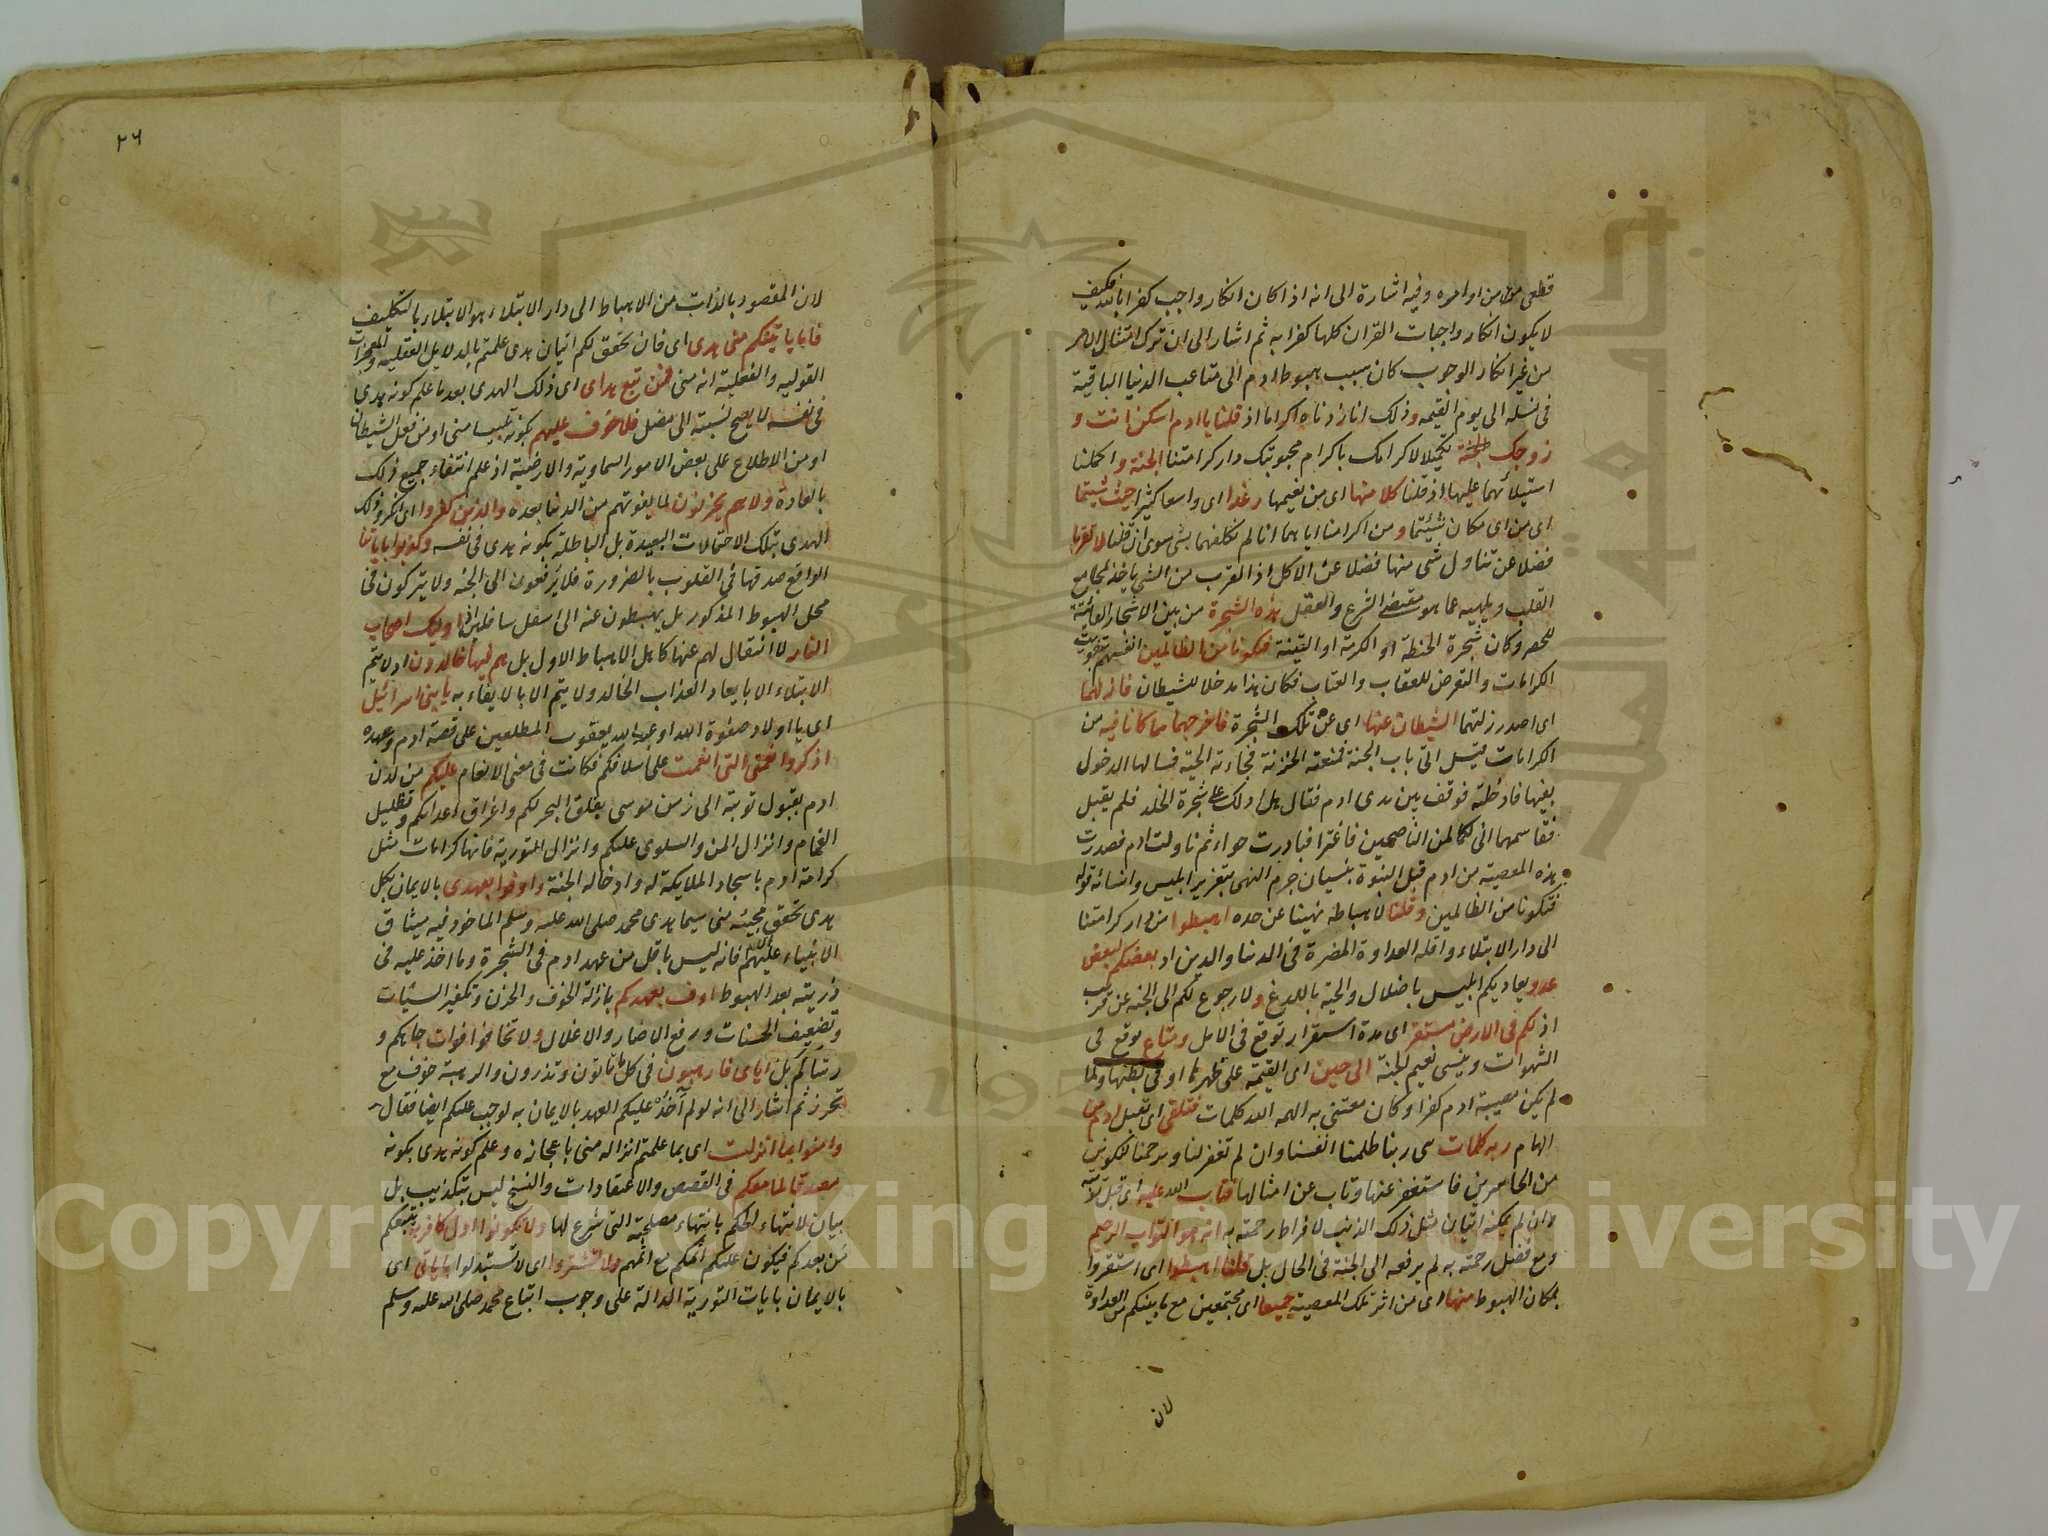 قطعى من اوامره وفيه اشارة الى انه اذا كان انكار واجب كفرا بالله فكيف
لا يكون انكار واجبات القران كلها كفرا به ثم اشار الى ان ترك امتثال الامر
من غير انكار الوجوب كان سبب هبوط ادم الى متاعب الدنيا الباقية
فى نسله الى يوم القيمه وذلك انا زدناه اكراما اذ قلنا يا ادم اسكن انت و
زوجك الجنة تكميلا لاكرامك باكرام محبوبتك دار كرامتنا الجنة و اكملنا
استيلائهما عليها اذ قلنا كلا منها اى من نعيمها رغدا اى واسعا كثيرا حيث شيتما
اى من اى مكان شيئتما ومن اكرامنا اياهما انا لم نكلفهما بشى سوى ان قلنا لا تقربا
فضلا عن تناول شى منها فضلا عن الاكل اذ القرب من الشى ياخذ بمجامع
القلب ويلهيه عما هو مقتضى الشرع والعقل هذه الشجرة من بين الاشجار الفائتة
للحصر وكان شجرة الحنطة او الكرمة او التينة فتكونا من الظالمين انفسهم بتفويت
الكرامات والتعرض للعقاب والعتاب فكان هذا مدخلا للشيطان فازلهما
اى اصدر زلتهما الشيطان عنها اى عن تلك الشجرة فاخرجهما مما كانا فيه من
الكرامات قيل اتى باب الجنة فمنعته الخزنة فجاءته الحية فسالها الدخول
بفيها فادخلته فوقف بين يدى ادم فقال هل ادلك على شجرة الخلد فلم يقبل
فقاسمهما انى لكما لمن الناصحين فاغترا فبادرت حواء ثم ناولت ادم فصدرت
هذه المعصية من ادم قبل النبوة بنسيان جرم النهى بتغرير ابليس وانسائه قوله
فتكونا من الظالمين وقلنا لاهباطه نهينا عن حده اهبطوا من دار كرامتنا
الى دار الابتلاء واقله العداوة المضرة فى الدنيا والدين اذ بعضكم لبعض
عدو يعاديكم ابليس باضلال والحية باللدغ ولا رجوع لكم الى الجنه عن قرب
اذ لكم فى الارض مستقر اى مدة استقرار توقع فى الامل ومتاع توقع فى
الشهوات وينسى نعيم الجنة الى حين اى القيمة على ظهرها او فى بطنها ولما
لم يكن معصية ادم كفرا وكان معتنى به الهمه الله كلمات فتلقى اى تقبل ادم من
الهام ربه كلمات هى ربنا ظلمنا انفسنا وان لم تغفر لنا وترحمنا لنكونن
من الخاسرين فاستغفر عنها وتاب عن امثالها فتاب الله عليه اى قبل
وان لم يمكنه اتيان مثل ذلك الذنب لافراط رحمته به انه هو التواب الرحيم
ومع فضل رحمته به لم يرفعه الى الجنة فى الحال بل قلنا اهبطوا اى استقروا
بمكان الهبوط منها اى من اثر تلك المعصية جميعا اى مجتمعين مع ما بينكم من العداوة
لان
٢٦
لان المقصود بالذات من الاهباط الى دار الابتلاء هو الابتلاء بالتكليف
فاما ياتينكم منى هدى اى فان تحقق لكم اتيان هدى علمتم بالدلايل العقليه والمعجزات
القوليه والفعلية انه منى فمن تبع هداى اى ذلك الهدى بعد ما علم كونه هدى
فى نفسه لا يصح نسبته الى مضل فلا خوف عليهم بكونه تلبيسا منى او من فعل الشيطان
او من الاطلاع على بعض الامور السماوية والارضية اذ علم انتفاء جميع ذلك
بالعادة ولا هم يحزنون لما يفوتهم من الدنيا بعده والذين كفروا اى انكروا ذلك
الهدى بتلك الاحتمالات البعيدة بل الباطلة بكونه هدى فى نفسه وكذبوا باياتنا
الواقع صدقها فى القلوب بالضرورة فلا يرفعون الى الجنه ولا يتركون فى
محل الهبوط المذكور بل يهبطون عنه الى اسفل سافلين اذ اوليك اصحاب
النار لا انتقال لهم عنها كاهل الاهباط الاول بل هم فيها خالدون اذ لا يتم
الابتلاء الا بايعاد العذاب الخالد ولا يتم الا بالايفاء به يا بنى اسرائيل
اى يا اولاد صفوة الله او عبد الله يعقوب المطلعين على قصة ادم وعهده
اذكروا نعمتى التى انعمت على اسلافكم فكانت فى معنى الانعام عليكم من لدن
ادم بقبول توبته الى زمن موسى بفلق البحر لكم واغراق اعدائكم وتظليل
الغمام وانزال المن والسلوى عليكم وانزال التورية فانها كرامات مثل
كرامة ادم باسجاد الملايكة له وادخاله الجنة واوفوا بعهدى بالايمان بكل
هدى تحقق مجيئه منى سيما هدى محمد صلى الله عليه وسلم الماخوذ فيه ميثاق
الانبياء عليهم فانه ليس باقل من عهد ادم فى الشجرة وما اخذ عليه فى
ذريته بعد الهبوط اوف بعهدكم بازالة الخوف والحزن وتكفير السيئات
وتضعيف الحسنات ورفع الاصار والاغلال ولا تخافوا فوات جاهكم و
رشاكم بل اياى فارهبون فى كل ما تاتون وتذرون والرهبة خوف مع
تحرز ثم اشار الى انه لو لم آخذه عليكم العهد بالايمان به لوجب عليكم ايضا فقال
وامنوا بما انزلت اى بما علمتم انزاله منى باعجازه وعلم كونه هدى بكونه
مصدقا لما معكم فى القصص والاعتقادات والنسخ ليس بتكذيب بل
بيان لانتهاء الحكم بانتهاء مصلحته التى شرع لها ولا تكونوا اول كافر به يتبعكم
من بعدكم فيكون عليكم اثمكم مع اثمهم ولا تشتروا اى لا تستبدلوا باياتى اى
بالايمان بايات التورية الدالة على وجوب اتباع محمد صلى الله عليه وسلم
Copyright King Saud University
1957